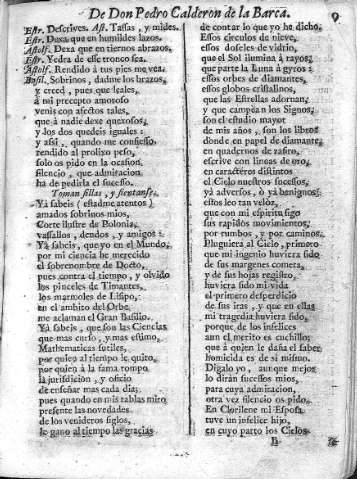 De Don Pedro Calderon de la Barca. 9
Estr. Descrives. Ast. Tassas, y mides.
Estr. Dexa que en humildes lazos.
Astolf. Dexa que en tiernos abrazos,
Estr. Yedra de esse tronco sea.
Astolf. Rendido à tus pies me vea.
Basil. Sobrinos, dadme los brazos,
y creed, pues que leales,
à mi precepto amoroso
venis con afectos tales,
que à nadie dexe quexosos,
y los dos quedeis iguales:
y assi, quando me confiesso
rendido al prolixo peso,
solo os pido en la ocasion
silencio, que admiracion
ha de pedirla el sucesso.
Toman sillas, y sientanse.
Yà sabeis (estadme atentos)
amados sobrinos mios,
Corte ilustre de Polonia,
vassallos, deudos, y amigos:
Yà sabeis, que yo en el Mundo,
por mi ciencia he merecido
el sobrenombre de Docto,
pues contra el tiempo, y olvido
los pinceles de Timantes,
los marmoles de Lisipo,
en el ambito del Orbe
me aclaman el Gran Basilio.
Yà sabeis, que son las Ciencias
que mas curso, y mas estimo,
Mathematicas sutiles,
por quien al tiempo le quito,
por quien à la fama rompo
la jurisdicion, y oficio
de enseñar mas cada dia;
pues quando en mis tablas miro
presente las novedades
de los venideros siglos,
le gano al tiempo las gracias
de contar lo que yo he dicho.
Essos circulos de nieve,
essos doseles de vidrio,
que el Sol ilumina à rayos,
que parte la Luna à gyros:
essos orbes de diamantes,
essos globos cristalinos,
que las Estrellas adornan,
y que campean los Signos,
son el estudio mayor
de mis años, son los libros
donde en papel de diamante,
en quadernos de zafiro,
escrive con lineas de oro,
en caractéres distintos
el Cielo nuestros sucessos,
yà adversos, ò yà benignos:
estos leo tan veloz,
que con mi espiritu sigo
sus rapidos movimientos,
por rumbos, y por caminos.
Pluguiera al Cielo, primero
que mi ingenio huviera sido
de sus margenes comento,
y de sus hojas registro,
huviera sido mi vida
el primero desperdicio
de sus iras, y que en ellas
mi tragedia huviera sido,
porque de los infelices
aun el merito es cuchillo,
que à quien le daña el saber,
homicida es de sì mismo.
Digalo yo, aunque mejor
lo diràn sucessos mios,
para cuya admiracion,
otra vez silencio os pido.
En Clorilene mi Esposa
tuve un infelice hijo,
en cuyo parto los Cielos
B